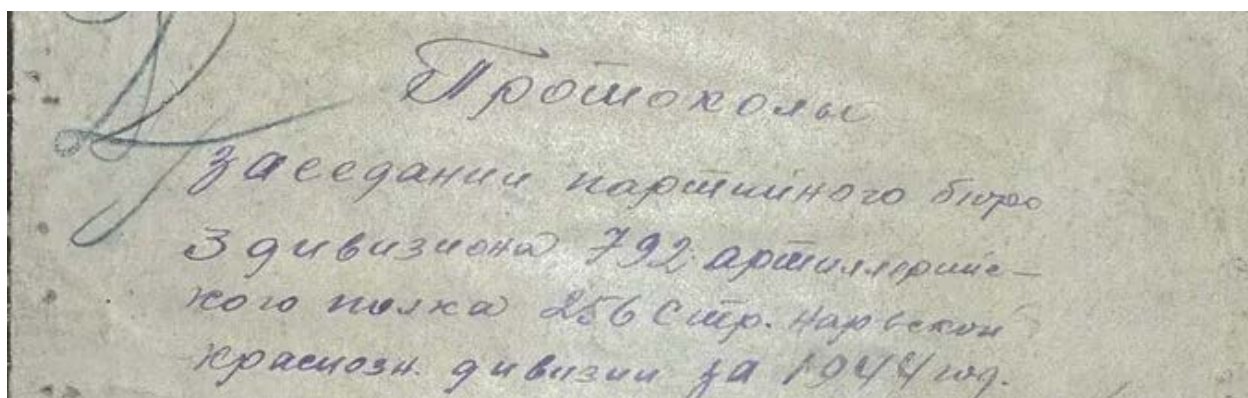 Протоколы
заседании партийного бюро
3 дивизиона 792 артиллерийс-
кого полка 256 Стр. Нарвской
краснозн. дивизии за 1944 год.